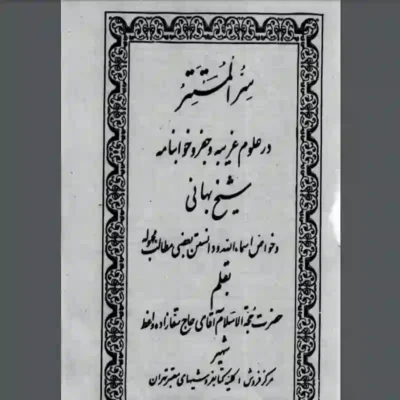 سر المستتر
در علوم غریبه و جفر و خوابنامه
شیخ بهائی
و خواص اسماء الله و دانستن بعضی مطالب مجهوله
بقلم
حضرت حجة الاسلام آقای حاج سقازاده واعظ
شهیر
مرکز فروش : کلیه کتابفروشیهای معتبر تهران